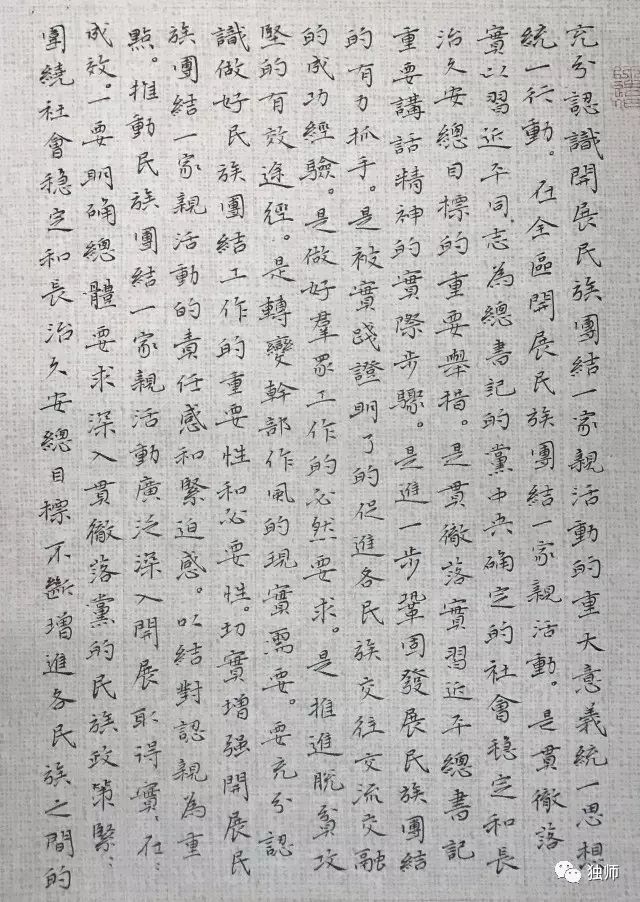 充分認識開展民族團結一家親活動的重大意義統一思想
統一行動。在全區開展民族團結一家親活動。是貫徹落
實以習近平同志為總書記的黨中央确定的社會穩定和長
治久安總目標的重要舉措。是貫徹落實習近平總書記
重要講話精神的實際步驟。是進一步鞏固發展民族團結
的有力抓手。是被實踐證明了的促進各民族交往交流交融
的成功經驗。是做好羣眾工作的必然要求。是推進脫貧攻
堅的有效途徑。是轉變幹部作風的現實需要。要充分認
識做好民族團結工作的重要性和必要性。切實增强開展民
族團結一家親活動的責任感和緊迫感。以結對認親為重
點。推動民族團結一家親活動廣泛深入開展取得實:在:
成效。一要明确總體要求深入貫徹落黨的民族政策緊:
圍繞社會穩定和長治久安總目標不斷增進各民族之間的
独师